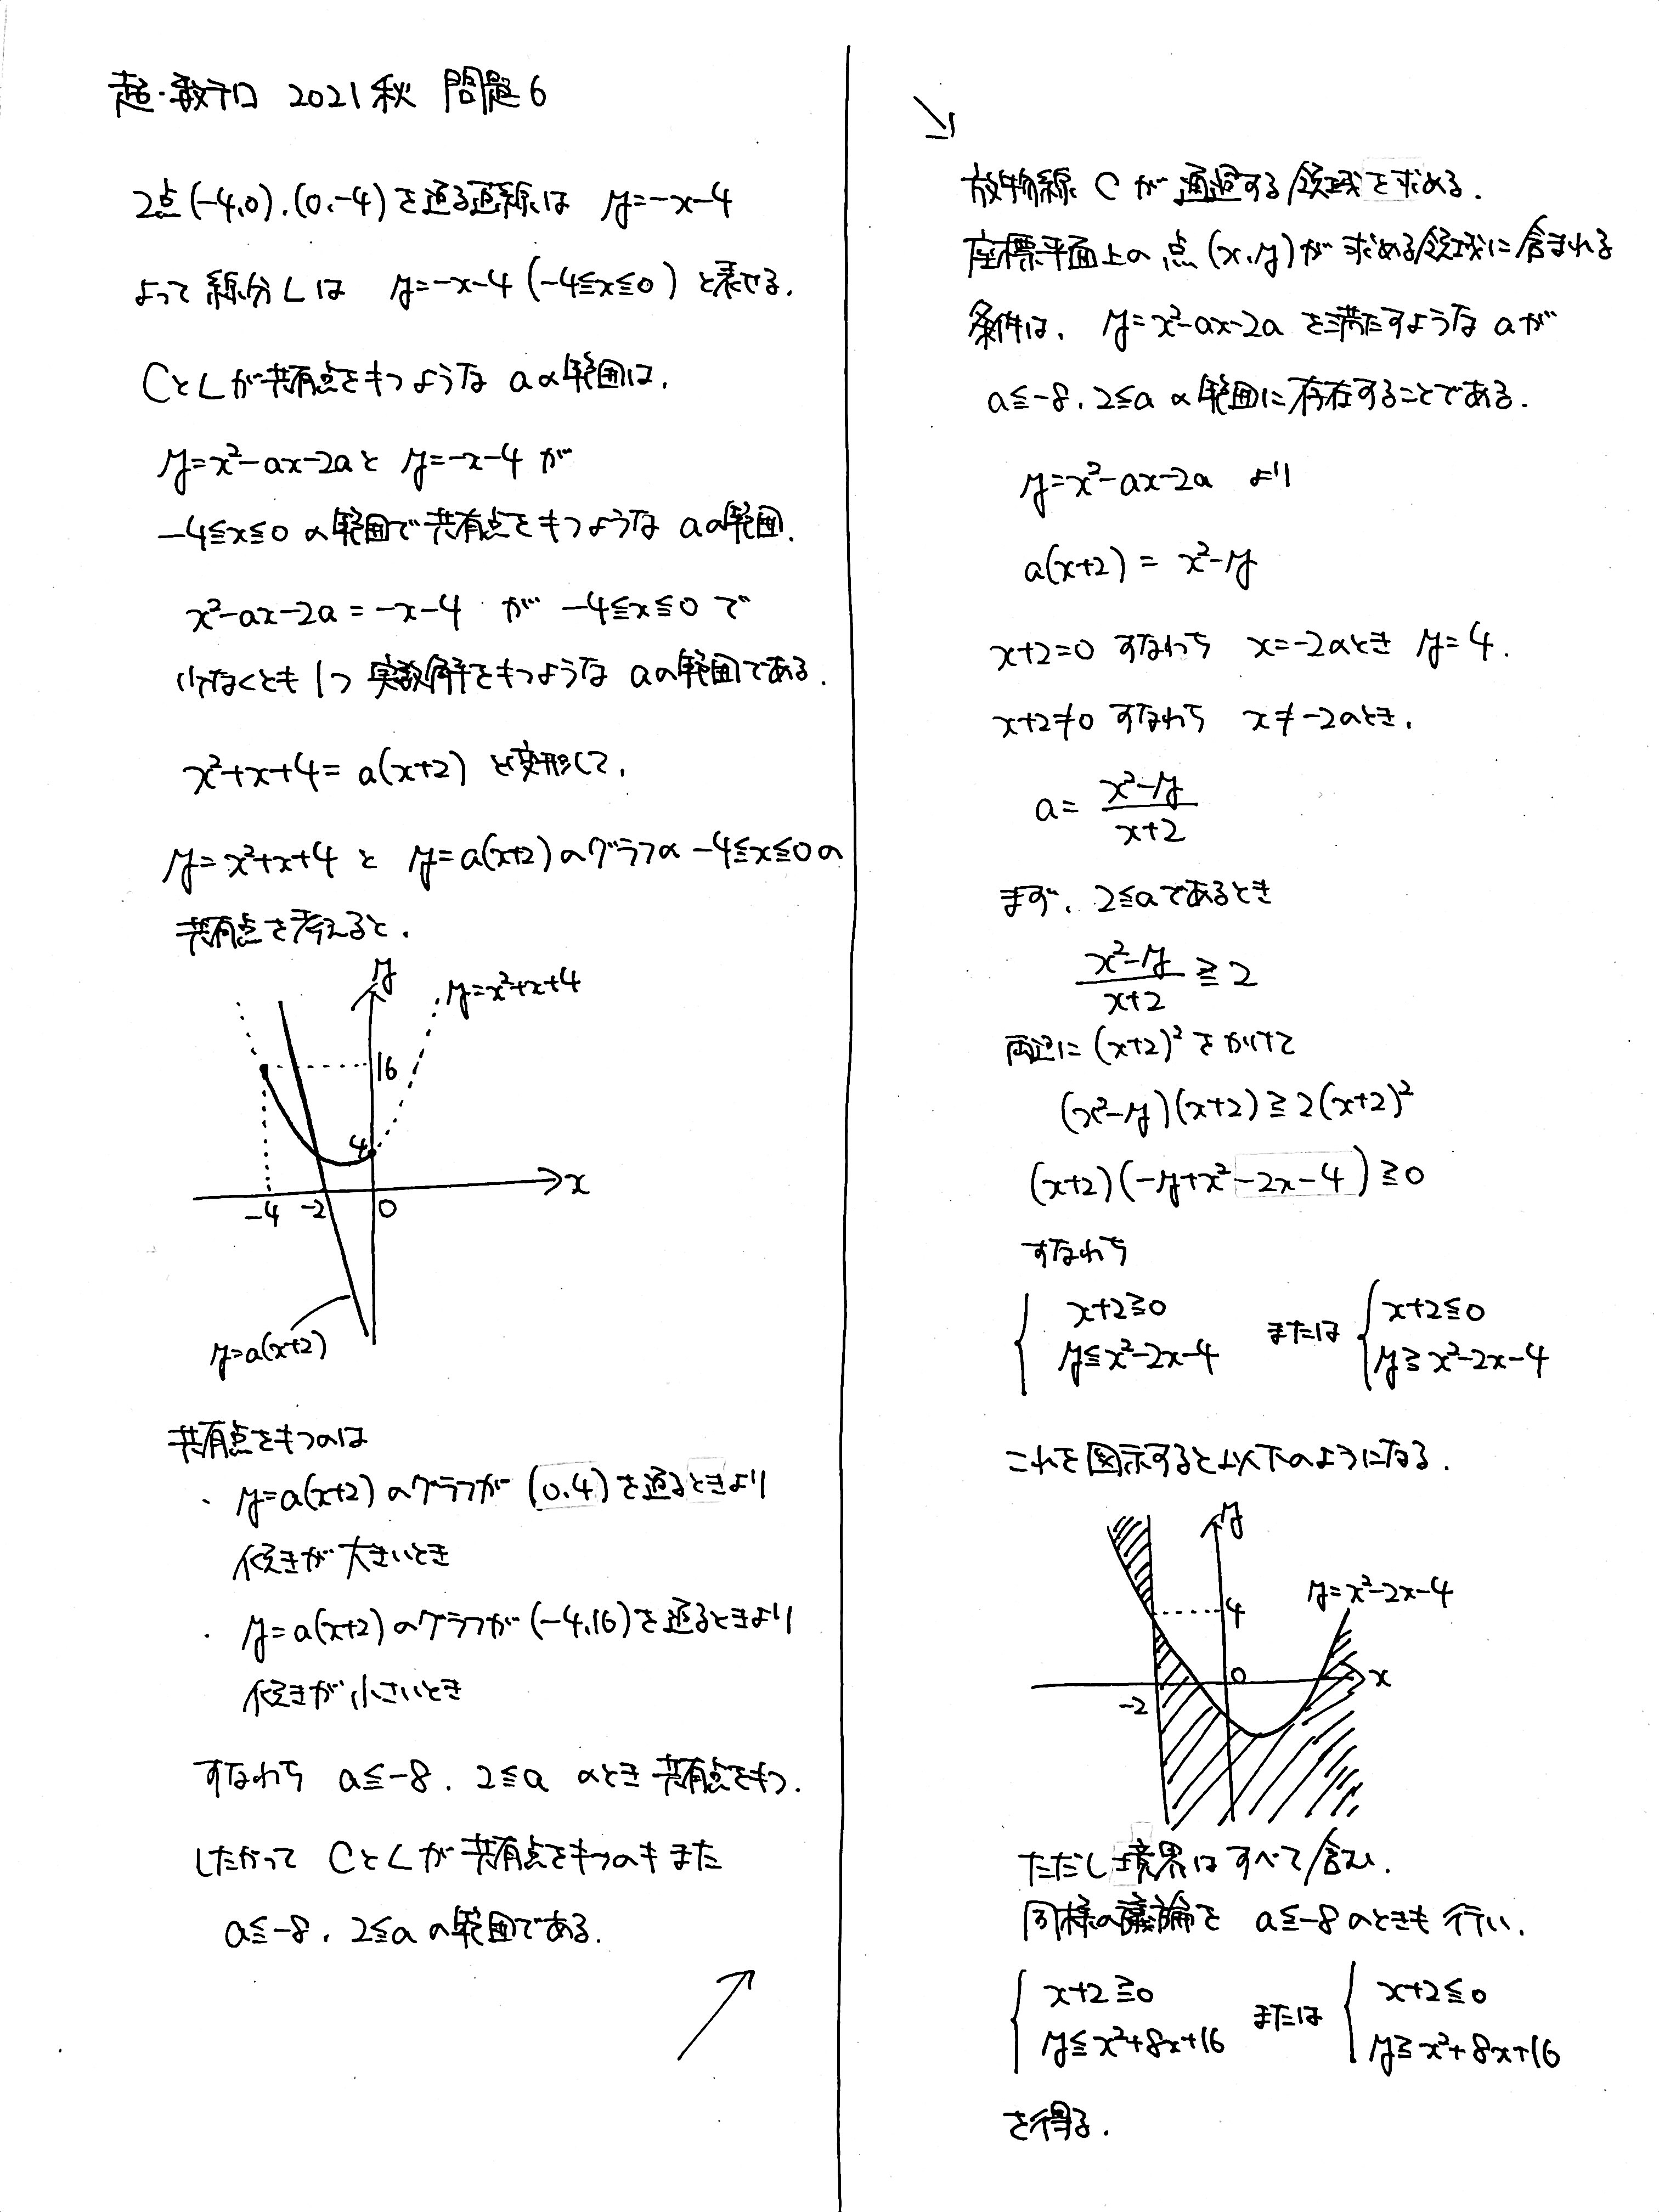 超・数テロ 2021秋 問題6
2点(-4,0),(0,-4)を通る直線は y=-x-4
よって線分Lは y=-x-4 (-4≦x≦0) と表せる.
CとLが共有点をもつような aの範囲は,
y=x²-ax-2aと y=-x-4 が
-4≦x≦0 の範囲で共有点をもつような aの範囲.
x²-ax-2a = -x-4 が -4≦x≦0 で
少なくとも1つ実数解をもつような aの範囲である.
x²+x+4 = a(x+2) と変形して,
y=x²+x+4 と y=a(x+2)のグラフの -4≦x≦0の
共有点を考えると,
y
y=x²+x+4
16
4
x
-4 -2 0
y=a(x+2)
共有点をもつのは
・ y=a(x+2)のグラフが (0,4)を通るときより
傾きが大きいとき
・ y=a(x+2)のグラフが(-4,16)を通るときより
傾きが小さいとき
すなわち a≦-8, 2≦a のとき共有点をもつ.
したがって CとLが共有点をもつのもまた
a≦-8, 2≦aの範囲である.
放物線 Cが通過する領域を求める.
座標平面上の点(x,y)が求める領域に含まれる
条件は, y=x²-ax-2a を満たすような aが
a≦-8, 2≦a の範囲に存在することである.
y=x²-ax-2a より
a(x+2) = x²-y
x+2=0 すなわち x=-2のとき y=4.
x+2≠0 すなわち x≠-2のとき,
a= (x²-y)/(x+2)
まず, 2≦aであるとき
(x²-y)/(x+2) ≧ 2
両辺に (x+2)²をかけて
(x²-y)(x+2) ≧ 2(x+2)²
(x+2)(-y+x²-2x-4) ≧ 0
すなわち
{ x+2≧0 または { x+2≦0
y≦x²-2x-4 y≧x²-2x-4
これを図示すると以下のようになる.
y
y=x²-2x-4
4
0
x
-2
ただし境界はすべて含む.
同様の議論を a≦-8のときも行い,
{ x+2≧0 または { x+2≦0
y≦x²+8x+16 y≧x²+8x+16
を得る.